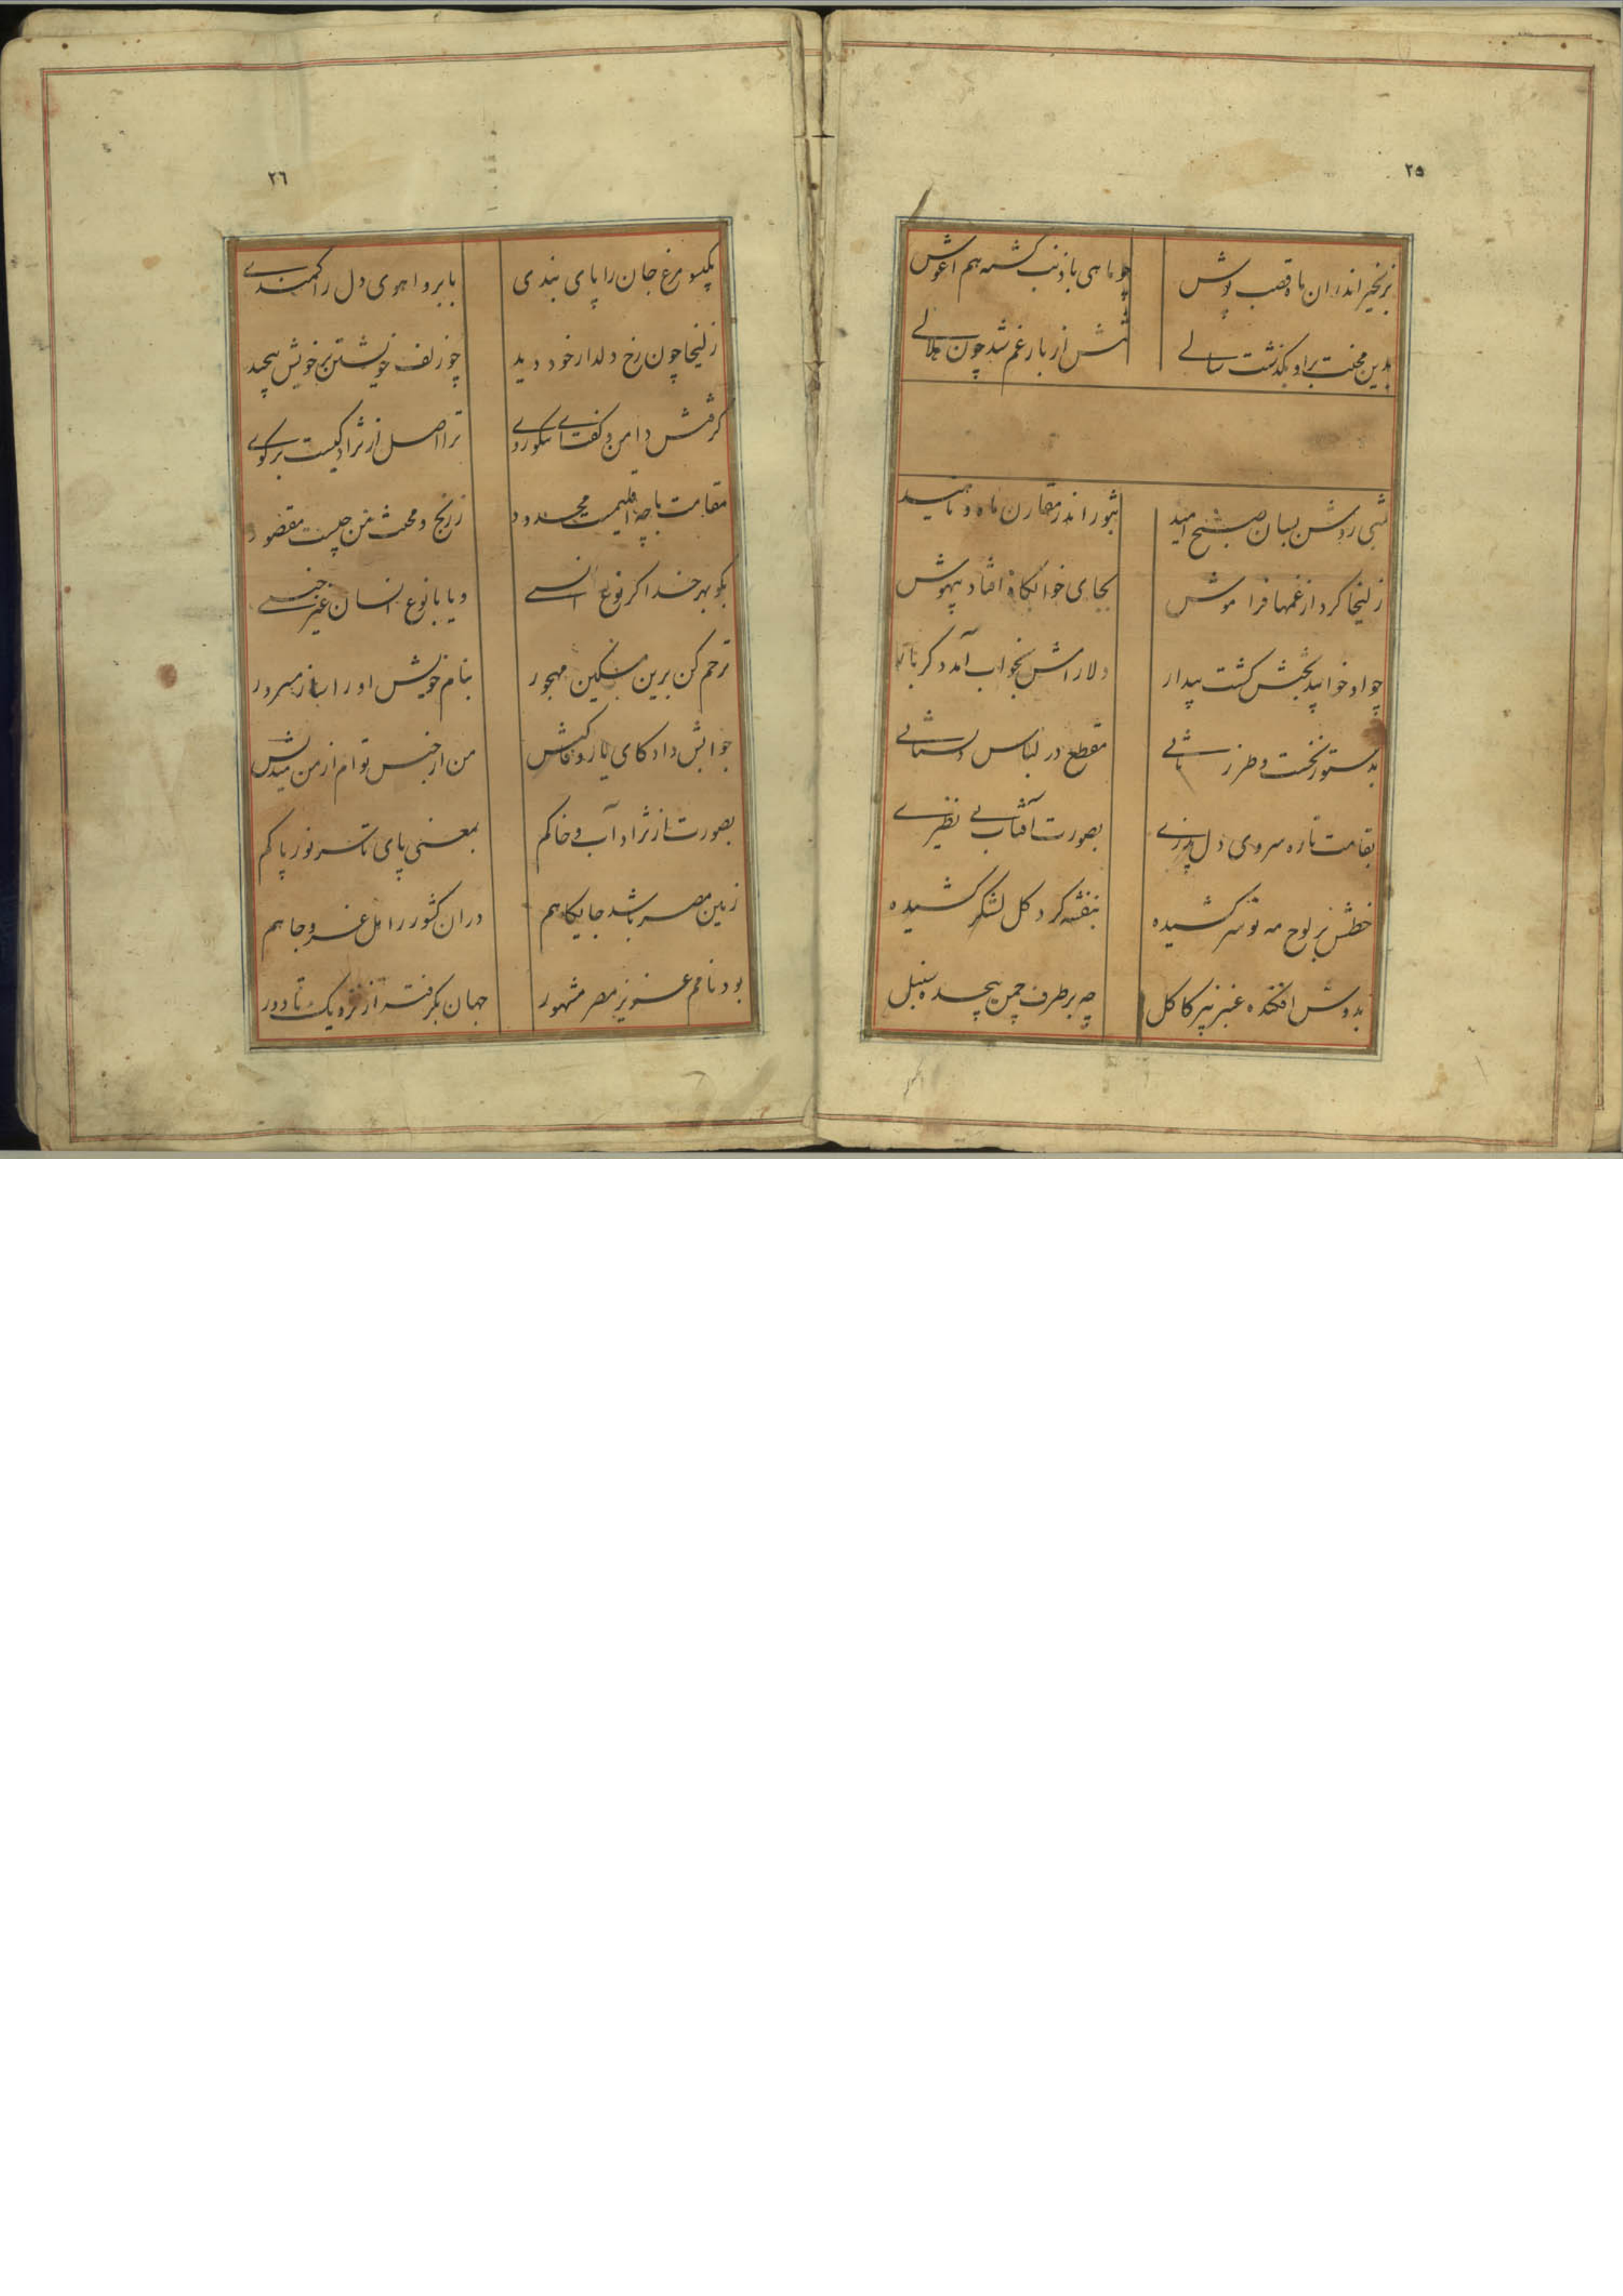 ۲۵
بزنجیر اندر ان ماه قصب پوش
چو ماهی با ذنب گشته هم اغوش
بدین محنت بر او بگذشت سالی
تنش از بار غم شد چون هلالی
شبی روشن بسان صبح امید
بثور اندر مقارن ماه و ناهید
زلیخا کرد از غمها فراموش
بجای خوابگاه افتاد بیهوش
چو او خوابید بختش گشت بیدار
دلارامش بخواب آمد دگر بار
بدستور نخست و طرز ثانی
مقطع در لباس دلستانی
بقامت تازه سروی دل پذیری
بصورت آفتابی بی نظیری
خطش بر لوح مه نو سر کشیده
بنفشه گرد گل لشگر کشیده
بدوش افکنده عنبر بیز کاکل
چه بر طرف چمن پیچیده سنبل
۲۶
بگیسو مرغ جان را پای بندی
بابرو اهوی دل را کمندی
زلیخا چون رخ دلدار خود دید
چو زلف خویشتن بر خویش پیچید
گرفتش دامن و گفت ای نکوروی
ترا اصل از نژاد کیست برگوی
مقامت با چه اقلیمست محدود
ز رنج و محنت من چیست مقصود
بگو بهر خدا گر نوع انسی
و یا با نوع انسان غیر جنسی
ترحم کن برین مسکین مهجور
بنام خویش او را ساز مسرور
جوابش داد کای یار وفا کیش
من از جنس توام از من میندیش
بصورت از نژاد آب و خاکم
بمعنی پای تا سر نور پاکم
زمین مصر باشد جایگاهم
دران کشور را مل عز و جاهم
بود نامم عزیز مصر مشهور
جهان بگرفته از نزدیک تا دور